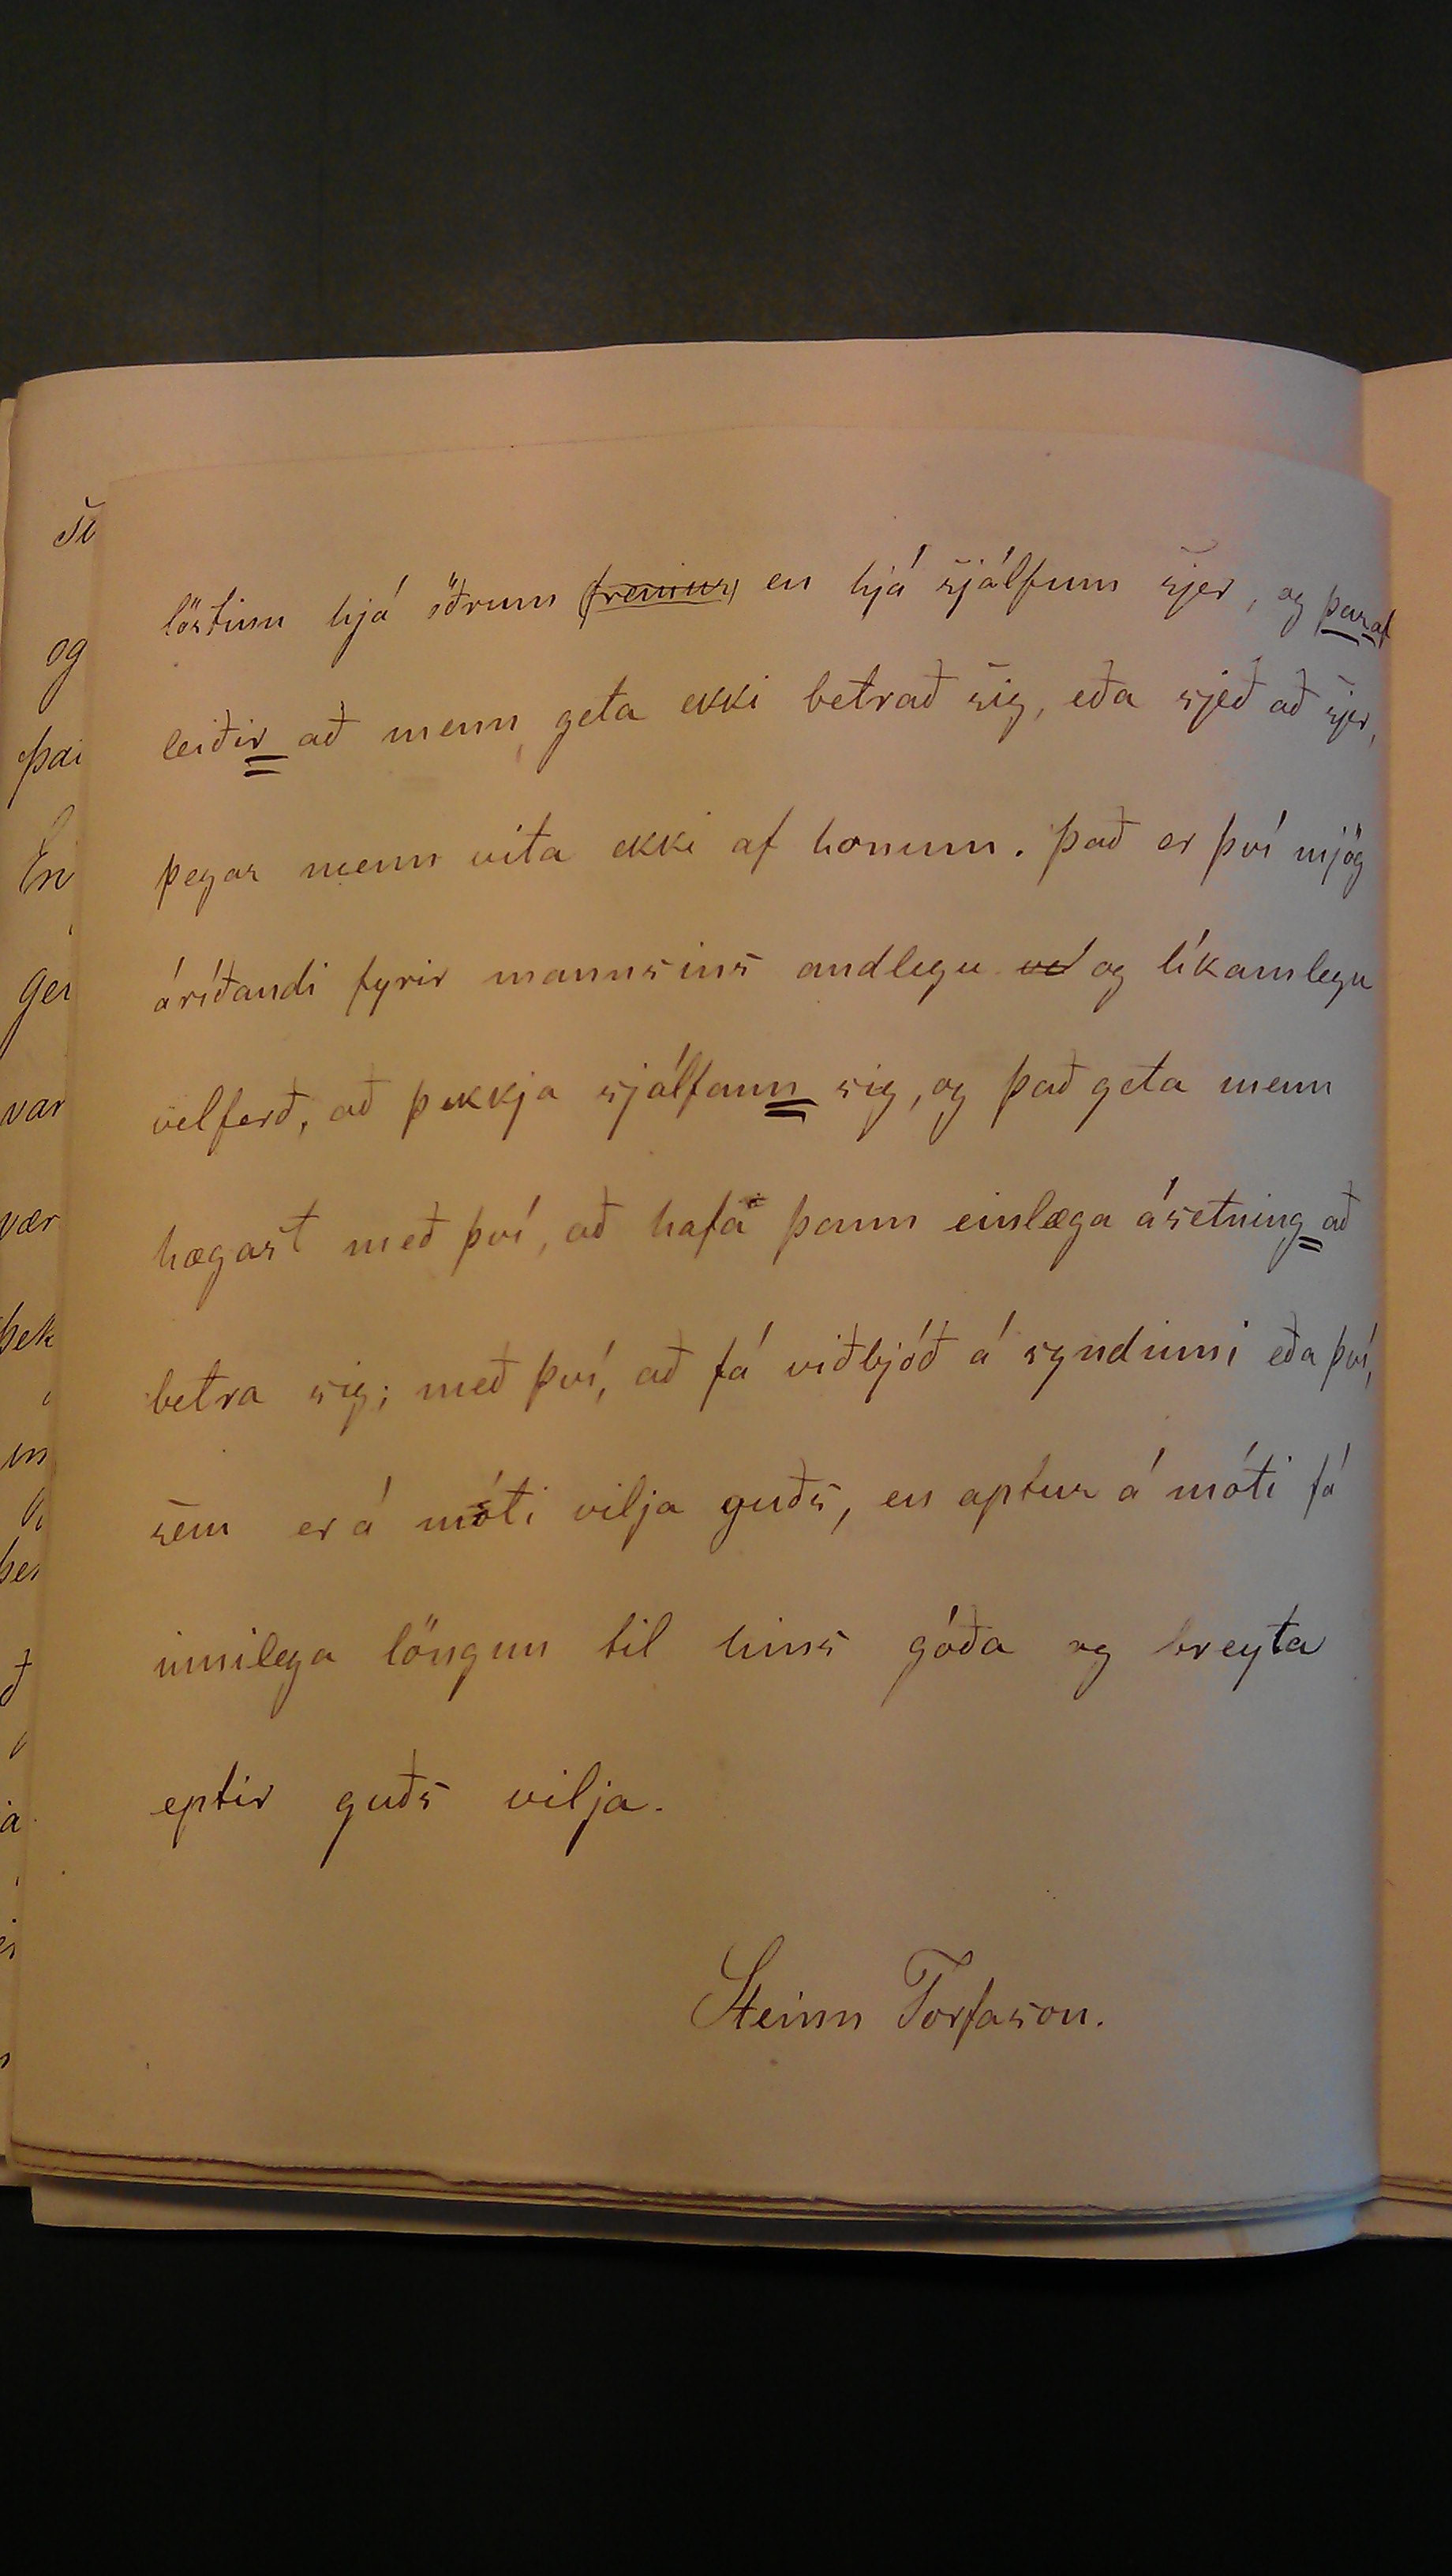 löstinn hjá öðrum fremur en hjá sjálfum sjer, og þaraf
leiðir að menn geta ekki betrað sig, eða sjeð að sjer,
þegar menn vita ekki af honum. Það er því mjög
áríðandi fyrir mannsins andlegu vel og líkamlegu
velferð, að þekkja sjálfann sig, og það geta menn
hægast með því, að hafa þann einlæga ásetning að
betra sig; með því, að fá viðbjóð á syndinni eða því,
sem er á móti vilja guðs, en aptur á móti fá
innilega löngun til hins góða og breyta
eptir guðs vilja.
Steinn Torfason.